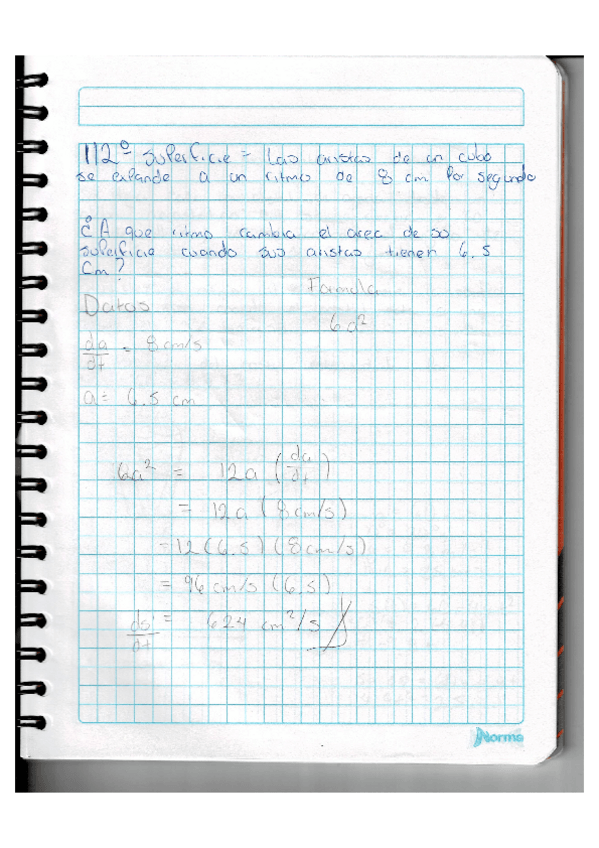 112º Superficie = Las aristas de un cubo
se expande a un ritmo de 8 cm por segundo
¿A que ritmo cambia el area de su
superficie cuando sus aristas tienen 6.5
Cm?
Formula
Datos
6a²
da/dt = 8 cm/s
a = 6.5 cm
6a² = 12a (da/dt)
= 12a (8 cm/s)
= 12 (6.5) (8 cm/s)
= 96 cm/s (6.5)
ds/dt = 624 cm²/s
Norma